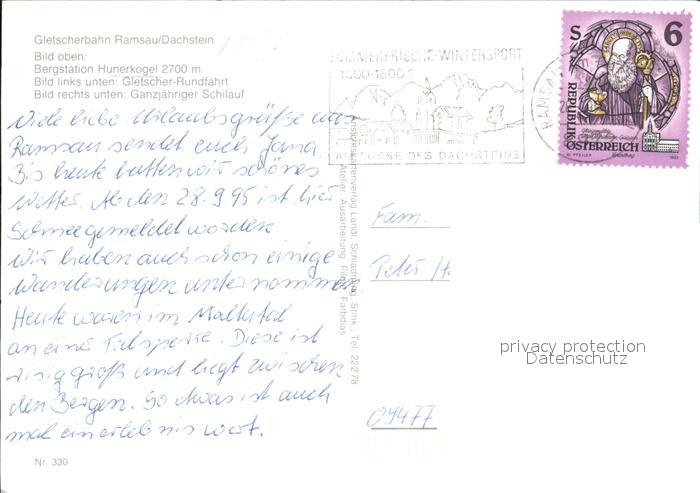 Gletscherbahn Ramsau/Dachstein
Bild oben:
Bergstation Hunerkogel 2700 m
Bild links unten: Gletscher-Rundfahrt
Bild rechts unten: Ganzjähriger Schilauf
Viele liebe Urlaubsgrüße aus
Ramsau sendet euch Jana.
Bis heute hatten wir schönes
Wetter. Ab den 28.9.95 ist hier
Schnee gemeldet worden.
Wir haben auch schon einige
Wanderungen unternommen.
Heute waren im Maltatal
an einer Talsperre. Diese ist
risig groß und liegt zwischen
den Bergen. So etwas ist auch
mal ein erlebnis wert.
Nr. 330
SOMMERFRISCHE-WINTERSPORT
AM FUSSE DES DACHSTEINS
RAMSAU
S 6
REPUBLIK
ÖSTERREICH
Ansichtskartenverlag Landl, Schladming, Stmk., Tel. 22278
Atelier, Ausarbeitung, Filme, Farbdias
Fam.
Peter H.
09477
privacy protection
Datenschutz